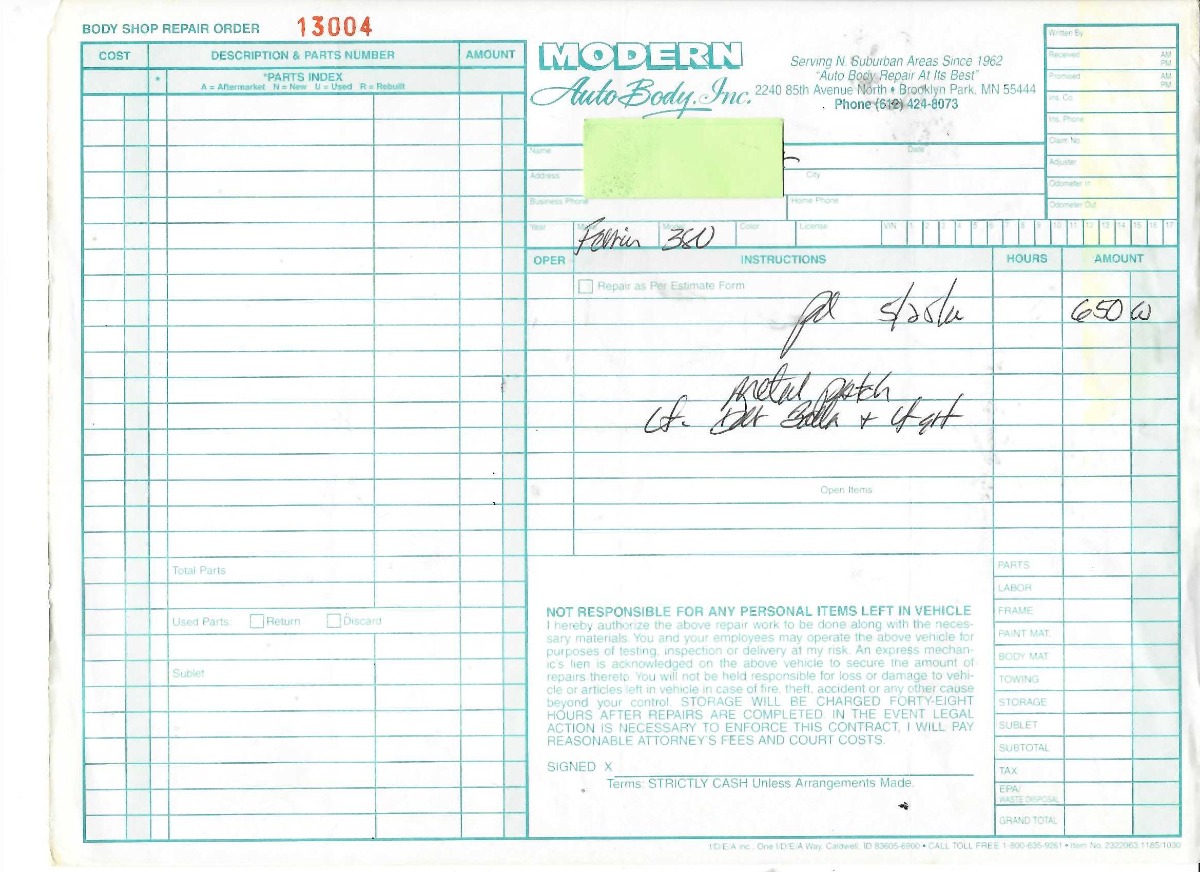 BODY SHOP REPAIR ORDER 13004
COST DESCRIPTION & PARTS NUMBER AMOUNT
* *PARTS INDEX
A = Aftermarket N = New U = Used R = Rebuilt
Total Parts
Used Parts: Return Discard
Sublet
MODERN
Auto Body, Inc.
Serving N. Suburban Areas Since 1962
"Auto Body Repair At Its Best"
2240 85th Avenue North • Brooklyn Park, MN 55444
Phone (612) 424-8073
Written By
Received AM
PM
Promised AM
PM
Ins. Co.
Ins. Phone
Claim No.
Adjuster
Odometer In
Odometer Out
Name Date
Address City
Business Phone Home Phone
Year Color License VIN 1 2 3 4 5 6 7 8 9 10 11 12 13 14 15 16 17
360
OPER INSTRUCTIONS HOURS AMOUNT
Repair as Per Estimate Form
pd 650
metal patch
Open Items
NOT RESPONSIBLE FOR ANY PERSONAL ITEMS LEFT IN VEHICLE
I hereby authorize the above repair work to be done along with the neces-
sary materials. You and your employees may operate the above vehicle for
purposes of testing, inspection or delivery at my risk. An express mechan-
ic's lien is acknowledged on the above vehicle to secure the amount of
repairs thereto. You will not be held responsible for loss or damage to vehi-
cle or articles left in vehicle in case of fire, theft, accident or any other cause
beyond your control. STORAGE WILL BE CHARGED FORTY-EIGHT
HOURS AFTER REPAIRS ARE COMPLETED. IN THE EVENT LEGAL
ACTION IS NECESSARY TO ENFORCE THIS CONTRACT, I WILL PAY
REASONABLE ATTORNEY'S FEES AND COURT COSTS.
SIGNED X
Terms: STRICTLY CASH Unless Arrangements Made.
PARTS
LABOR
FRAME
PAINT MAT.
BODY MAT.
TOWING
STORAGE
SUBLET
SUBTOTAL
TAX
EPA/
WASTE DISPOSAL
GRAND TOTAL
I/D/E/A inc., One I/D/E/A Way, Caldwell, ID 83605-6900 • CALL TOLL FREE 1-800-635-9261 • Item No. 2322063 1185/1030